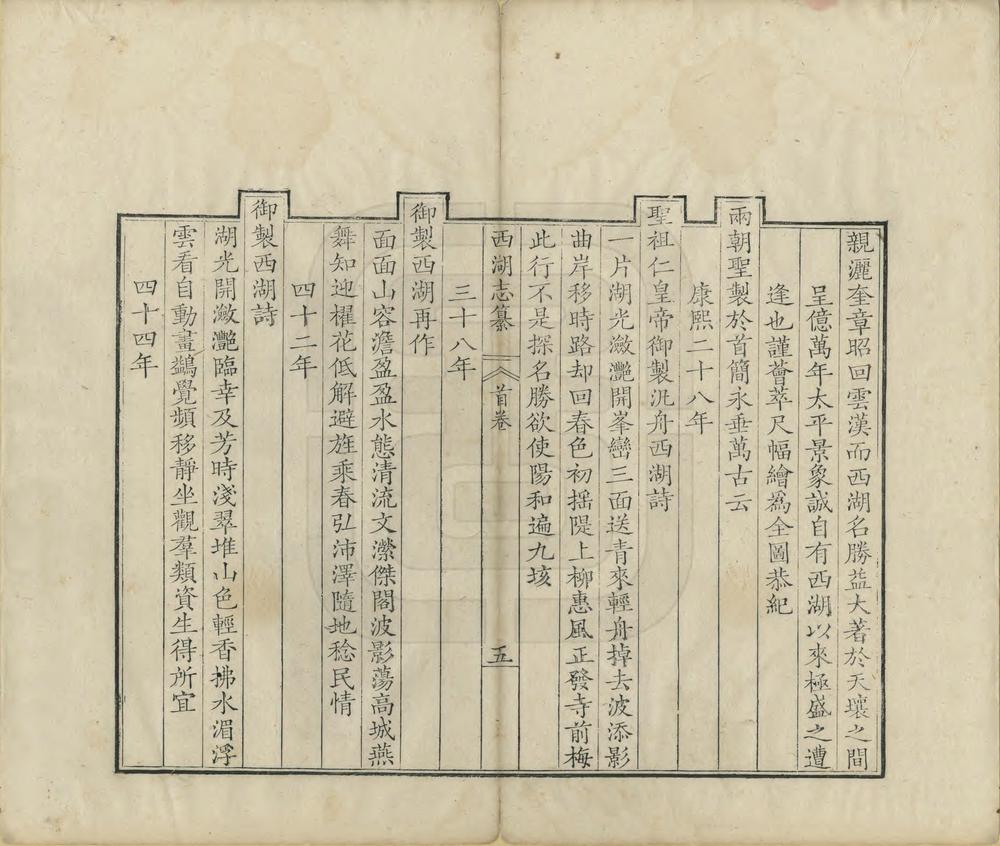 親灑奎章昭回雲漢而西湖名勝益大著於天壤之間
呈億萬年太平景象誠自有西湖以來極盛之遭
逢也謹薈萃尺幅繪為全圖恭紀
兩朝聖製於首簡永垂萬古云
康熙二十八年
聖祖仁皇帝御製汎舟西湖詩
一片湖光瀲灧開峯巒三面送青來輕舟掉去波添影
曲岸移時路却回春色初摇隄上柳惠風正發寺前梅
此行不是探名勝欲使陽和遍九垓
西湖志纂 首卷 五
三十八年
御製西湖再作
面面山容澹盈盈水態清流文瀠傑閣波影蕩高城燕
舞知迎櫂花低解避旌乘春弘沛澤隨地稔民情
四十二年
御製西湖詩
湖光開瀲灧臨幸及芳時淺翠堆山色輕香拂水湄浮
雲看自動畫鷁覺頻移靜坐觀羣類資生得所宜
四十四年